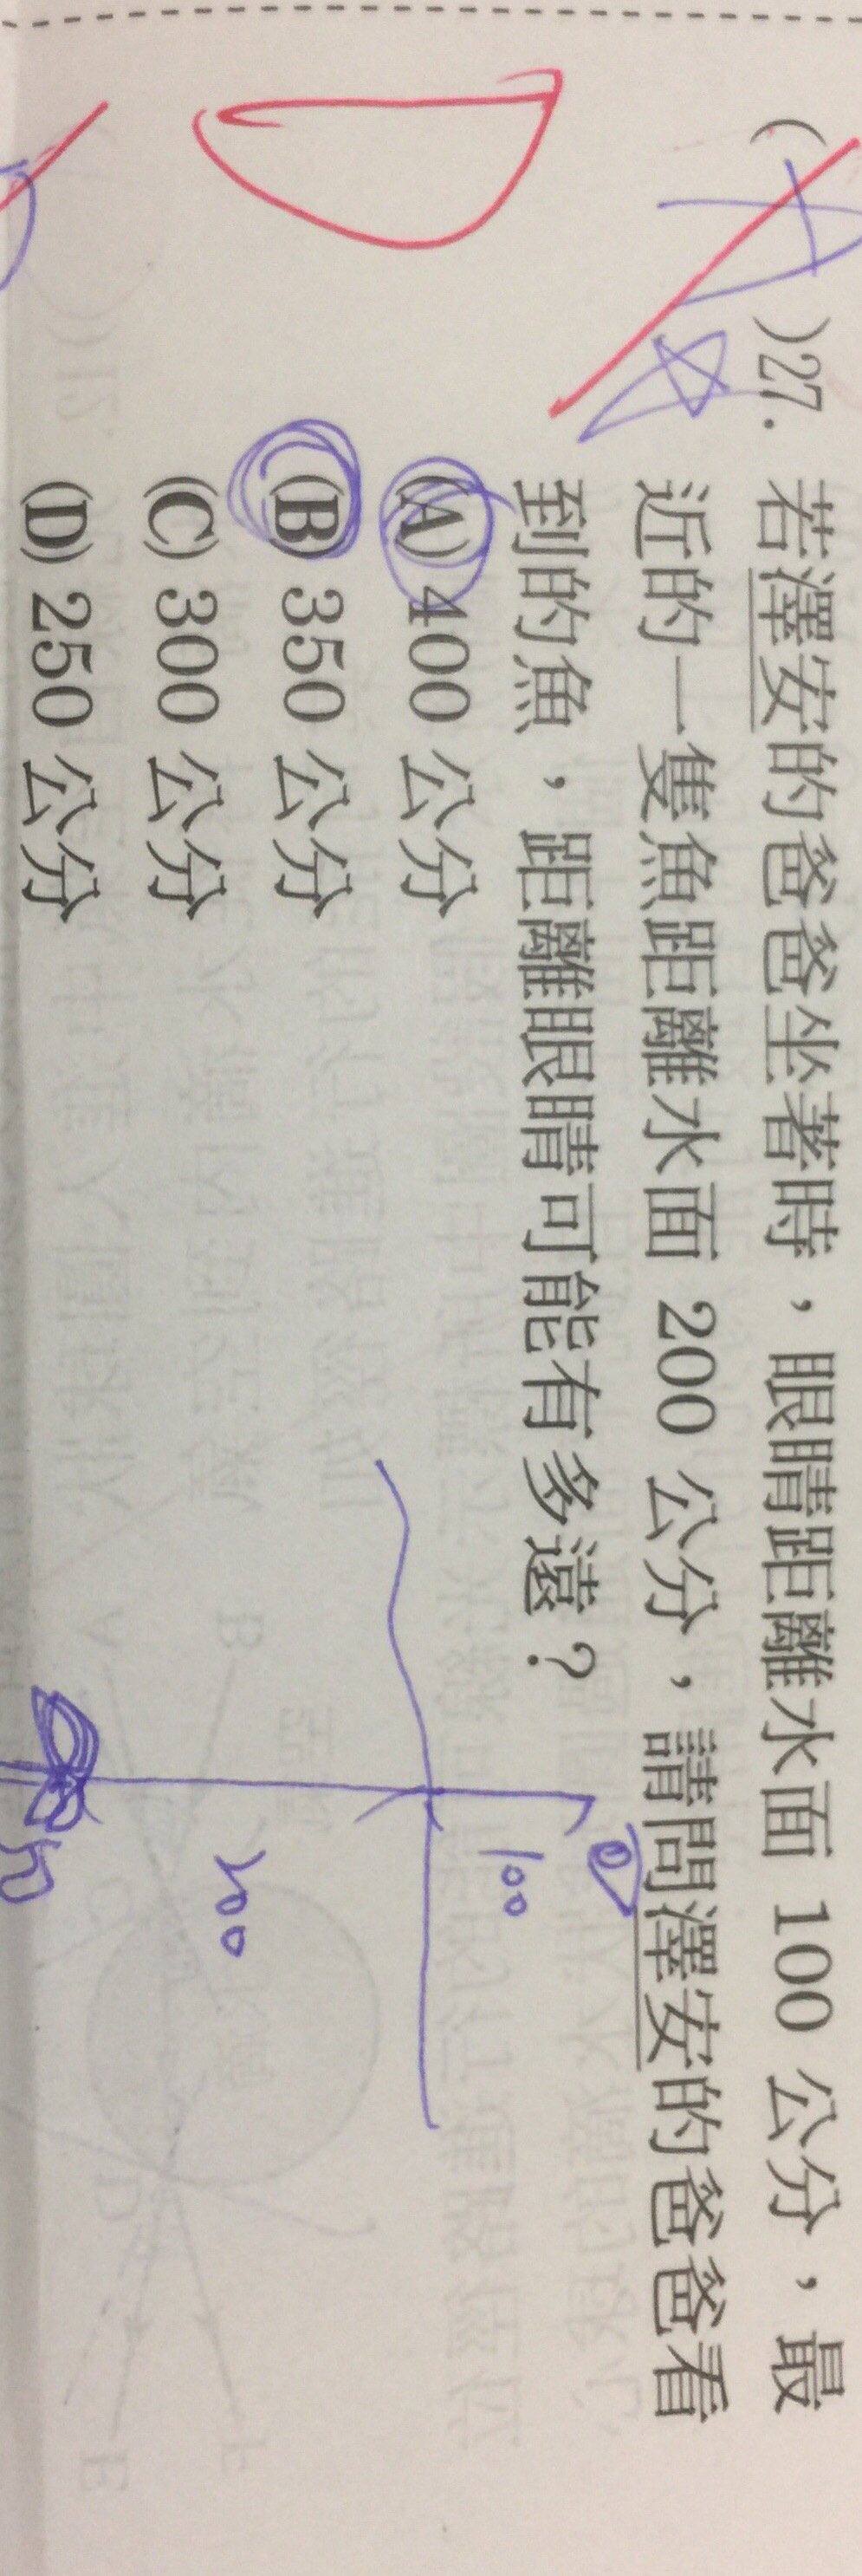 ( A )27. 若澤安的爸爸坐著時，眼睛距離水面 100 公分，最
近的一隻魚距離水面 200 公分，請問澤安的爸爸看
到的魚，距離眼睛可能有多遠？
(A) 400 公分
(B) 350 公分
(C) 300 公分
(D) 250 公分
D
100
200